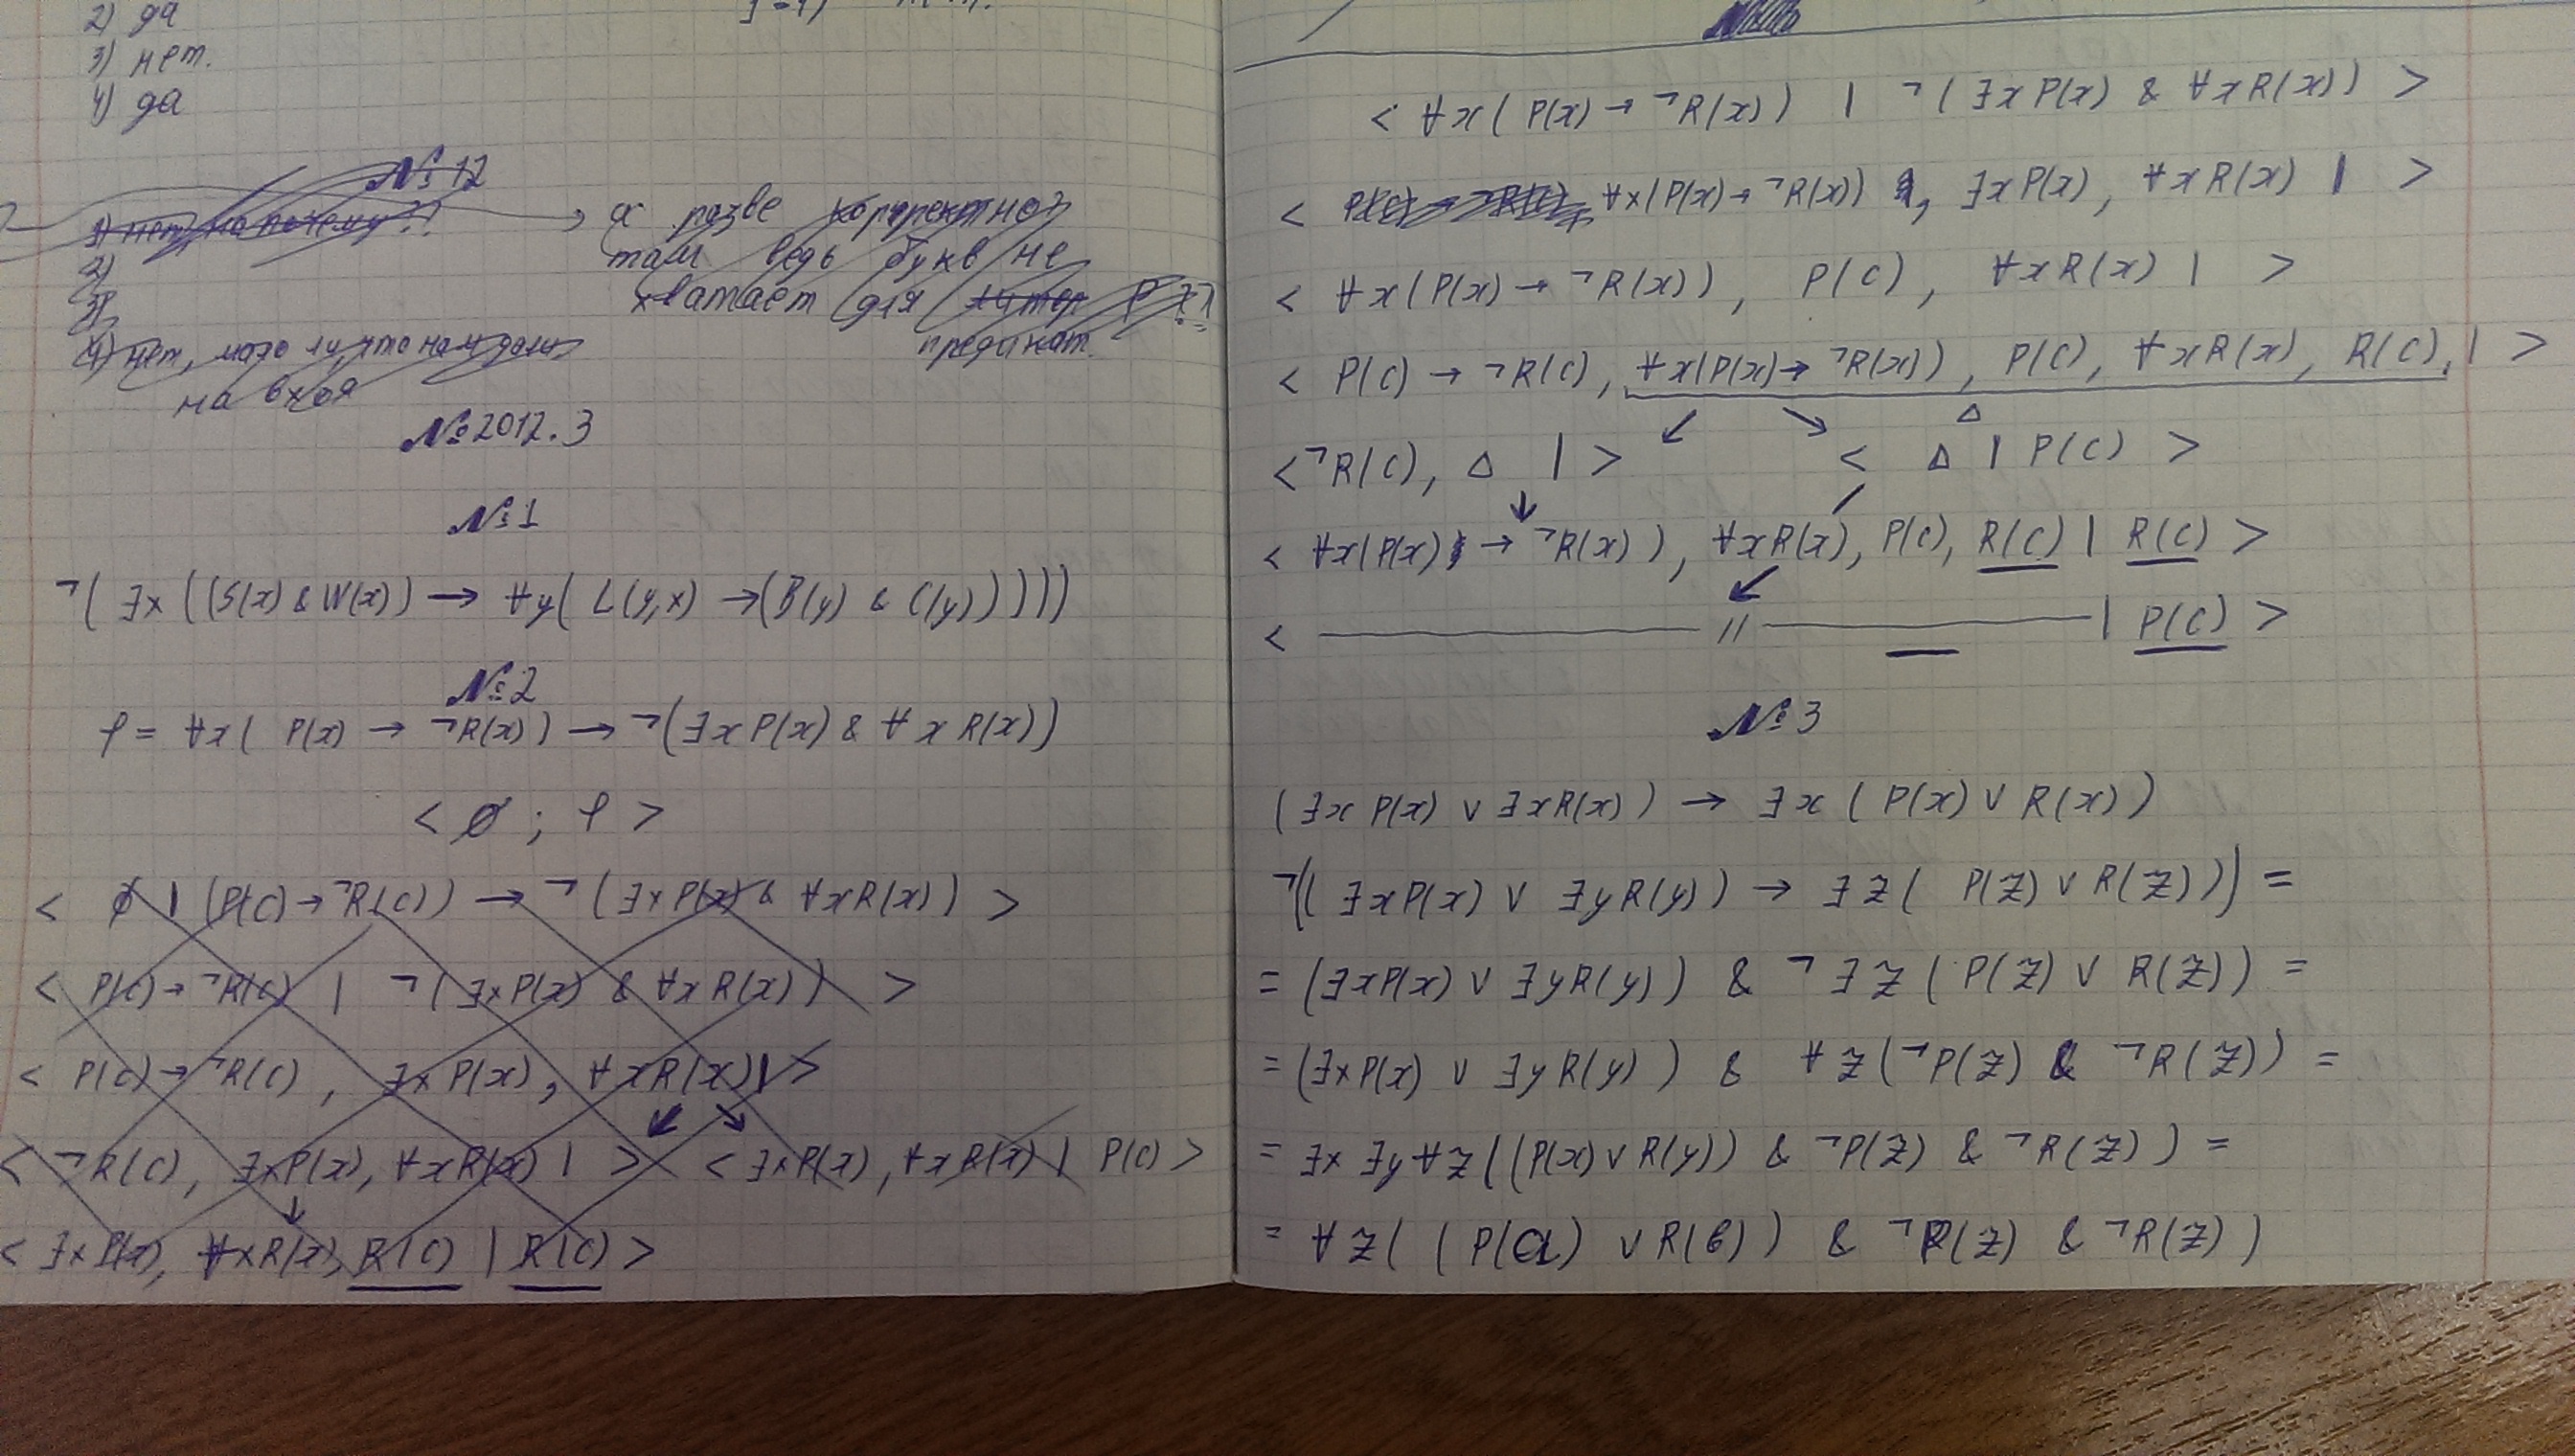 2) да
3) нет.
4) да
№12
1) нет, но почему??
а разве корректно?
2)
там ведь букв не
3)
хватает для
предикат.
4) нет, мало ли, кто нам
на вход
№2012.3
№1
¬(∃x((S(x) & W(x)) → ∀y(L(y,x) → (B(y) & C(y)))))
№2
φ = ∀x( P(x) → ¬R(x)) → ¬(∃x P(x) & ∀x R(x))
< ∅ ; φ >
< ∅ | (P(c) → ¬R(c)) → ¬(∃x P(x) & ∀x R(x)) >
< P(c) → ¬R(c) | ¬(∃x P(x) & ∀x R(x)) >
< P(c) → ¬R(c), ∃x P(x), ∀x R(x) | >
↙ ↘
< ¬R(c), ∃x P(x), ∀x R(x) | > < ∃x P(x), ∀x R(x) | P(c) >
↓
< ∃x P(x), ∀x R(x), R(c) | R(c) >
< ∀x( P(x) → ¬R(x)) | ¬(∃x P(x) & ∀x R(x)) >
< P(c) → ¬R(c), ∀x(P(x) → ¬R(x)), ∃x P(x), ∀x R(x) | >
< ∀x(P(x) → ¬R(x)), P(c), ∀x R(x) | >
< P(c) → ¬R(c), ∀x(P(x) → ¬R(x)), P(c), ∀x R(x), R(c), | >
↙ ↘ Δ
< ¬R(c), Δ | > < Δ | P(c) >
↓
< ∀x(P(x) → ¬R(x)), ∀x R(x), P(c), R(c) | R(c) >
↙
< —— // —— | P(c) >
№3
(∃x P(x) ∨ ∃x R(x)) → ∃x ( P(x) ∨ R(x))
¬((∃x P(x) ∨ ∃y R(y)) → ∃z( P(z) ∨ R(z))) =
= (∃x P(x) ∨ ∃y R(y)) & ¬∃z ( P(z) ∨ R(z)) =
= (∃x P(x) ∨ ∃y R(y)) & ∀z(¬P(z) & ¬R(z)) =
= ∃x ∃y ∀z((P(x) ∨ R(y)) & ¬P(z) & ¬R(z)) =
= ∀z( ( P(a) ∨ R(b)) & ¬P(z) & ¬R(z))